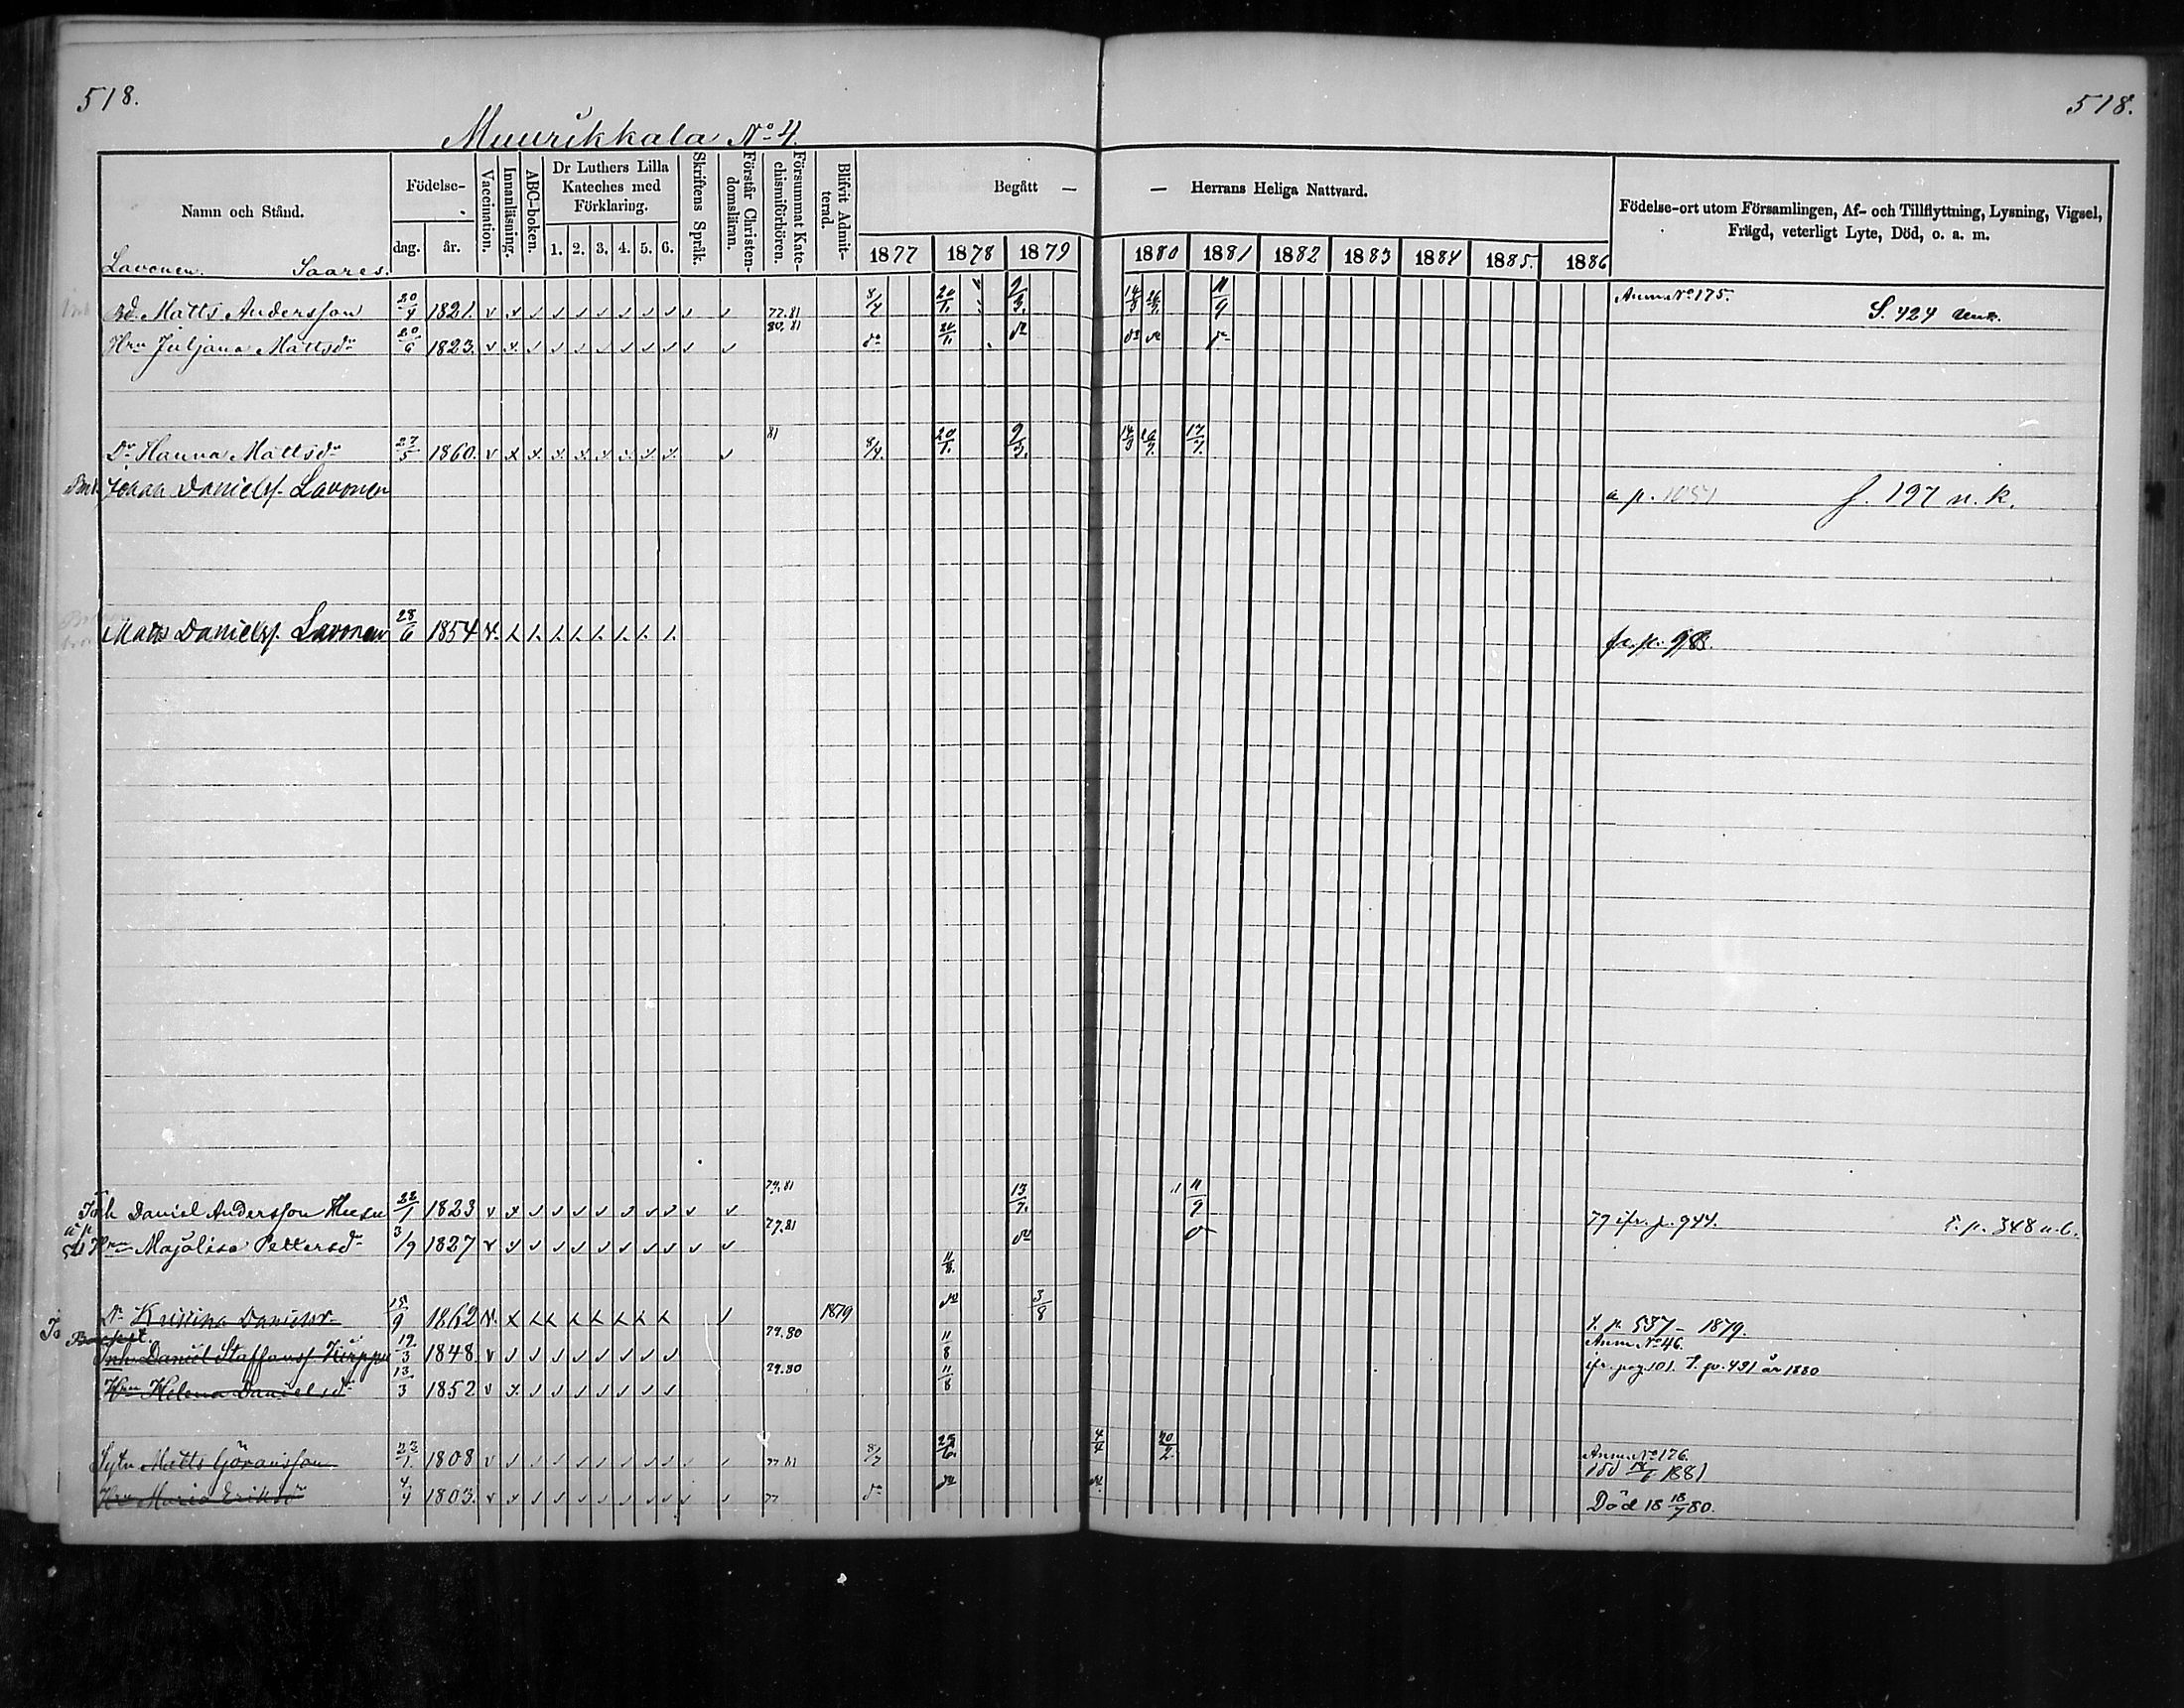 518.
518.
Muurikkala No 4.
Namn och Stånd.
Födelse-
dag.
år.
Vaccination.
Innanläsning.
ABC-boken.
Dr Luthers Lilla Kateches med Förklaring.
1. 2. 3. 4. 5. 6.
Skriftens Språk.
Förstår Christen-domsläran.
Försummat Kate-chismiförhören.
Blifvit Admit-terad.
Begått — — Herrans Heliga Nattvard.
1877 1878 1879 1880 1881 1882 1883 1884 1885. 1886
Födelse-ort utom Församlingen, Af- och Tillflyttning, Lysning, Vigsel,
Frägd, veterligt Lyte, Död, o. a. m.
Lavonen. Saares.
Bd. Matts Andersson 20/4 1821. 77.81 8/4 20/1. 9/3. 14/3 11/9 Anm. No 175. S. 424
Hru Juljana Mattsdr 20/6 1823. 80.81 do do do do do
Dr Hanna Mattsdr 27/5 1860. 81 8/4. 20/1. 9/3. 14/3 17/7.
Johan Daniels. Lavonen a p. 1051 f. 197 n. k.
Matts Daniels. Lavonen 28/6 1854 fr. p. 98.
Inh Daniel Andersson Husu 22/1 1823 79.81 13/7. 11/9 79 ifr. p. 944. t. p. 348 n. b.
Hru Majalisa Pettersdr 3/9 1827 77.81 do do
11/8.
Dr Kristina Danielsdr 15/9 1862 1879 do 3/8 t. p. 537 – 1879.
Inh. Daniel Staffanss. Kirppu 19/3 1848 79.80 11/8 Anm. No 46.
Hru Helena Danielsdr 13/3 1852 79.80 11/8 ifr. pag 101. T. p. 491 år 1880
Sytn Matts Göransson 23/1 1808 77.81 8/7 4/4 20/2 Anm. No 176.
död 1881
Hru Maria Eriksdr 4/4 1803. 77 do do do Död 18 18/7 80.